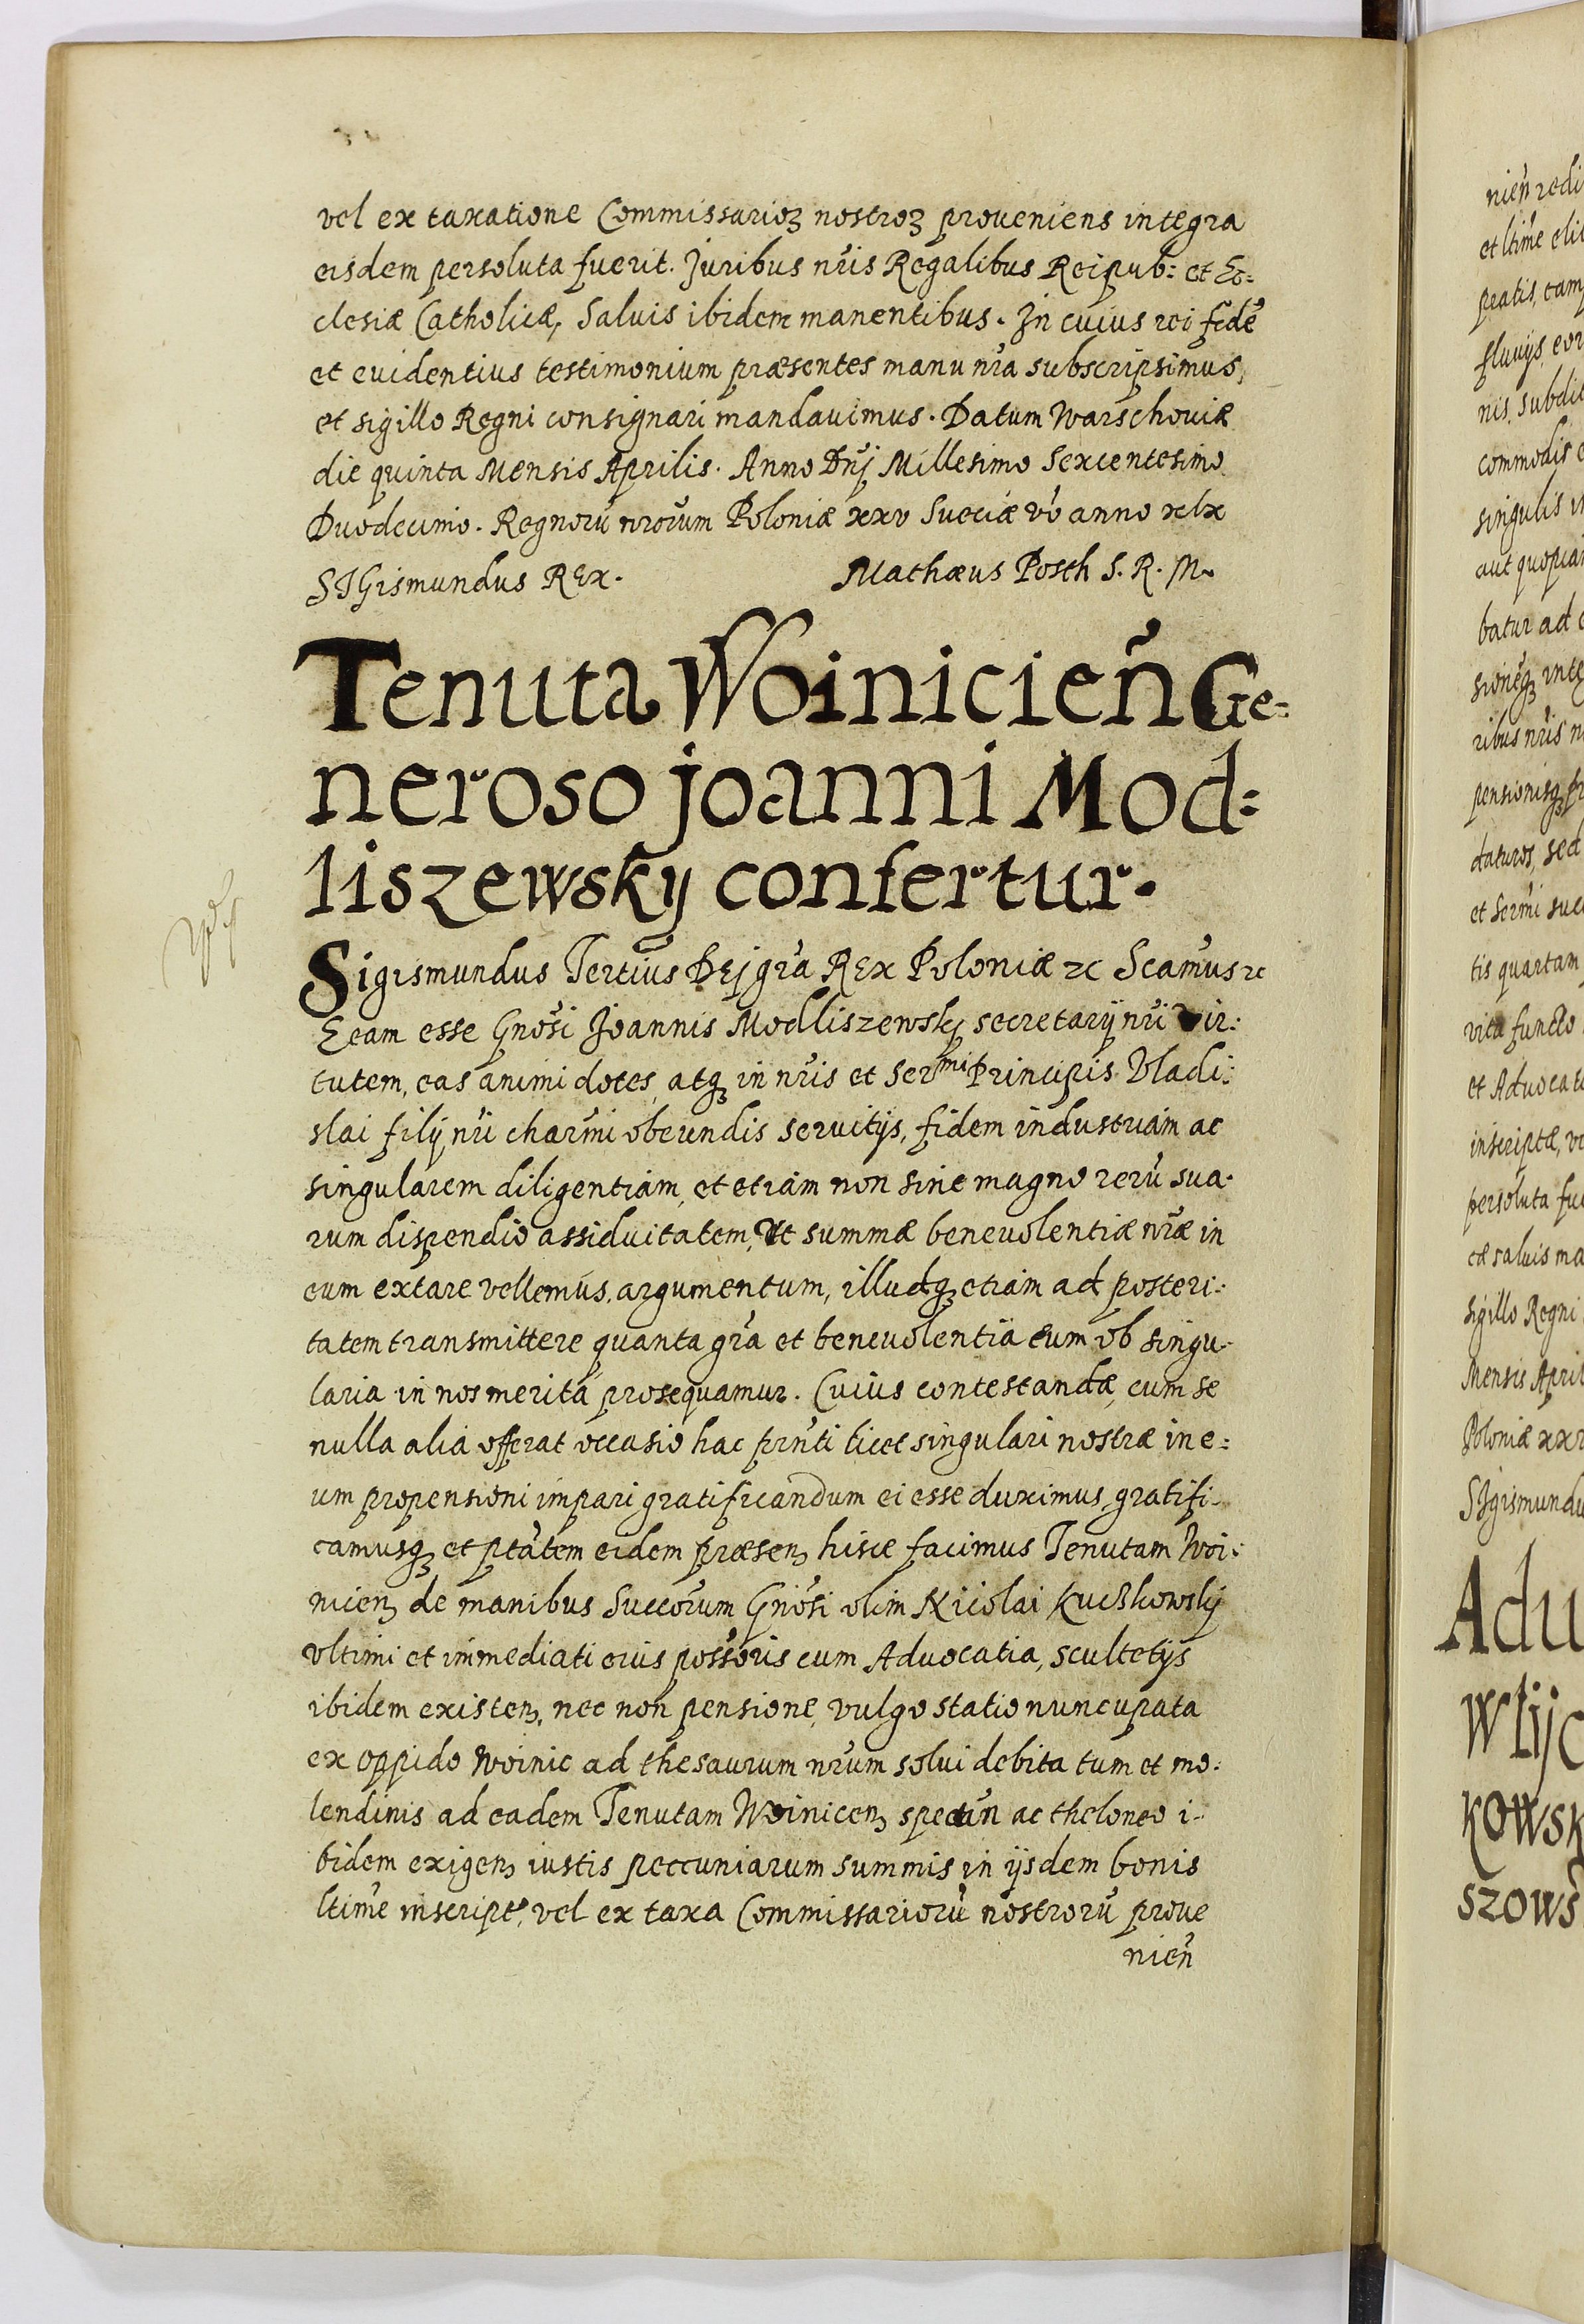 vel ex taxatione Commissarioꝝ nostroꝝ proueniens integra
eisdem persoluta fuerit. Juribus nr̃is Regalibus Reipub: et Ec=
clesiæ Catholicæ, Saluis ibidem manentibus. In cuius rei fidẽ
et euidentius testimonium præsentes manu nr̃a subscripsimus,
et sigillo Regni consignari mandauimus. Datum Warschoviæ
die quinta Mensis Aprilis. Anno Dn̄j Millesimo Sexcentesimo
Duodecimo. Regnorũ nr̃orum Poloniæ xxv Sueciæ võ anno xlx
SIGismundus REx. Mathæus Posth S. R. M.
Tenuta Woinicień Ge=
neroso Joanni Mod=
liszewskÿ confertur.
Sigismundus Tertius DEj gr̃a REx Poloniæ ꝛc Scam̃us ꝛc
Eeam esse Gnõsi Joannis Modliszewskÿ secretarÿ nr̃i Vir:
tutem, eas animi dotes, atqꝫ in nr̃is et Ser^mi Principis Vladi:
slai filÿ nr̃i charm̃i obeundis seruitÿs, fidem industriam ac
singularem diligentiam, et etiam non sine magno rerũ sua.
rum dispendio assiduitatem, Vt summæ beneuolentiæ nr̃æ in
eum extare vellemus, argumentum, illudqꝫ etiam ad posteri:
tatem transmittere quanta gr̃a et beneuolentia eum ob singu:
laria in nos merita prosequamur. Cuius contestandæ, cum se
nulla alia offerat occasio hac prñti licet singulari nostræ in e=
um propensioni impari gratificandum ei esse duximus, gratifi-
camusqꝫ et ptãtem eidem præsenꝫ hisce facimus Tenutam Woi:
nicenꝫ de manibus Succor̃um Gnõsi olim Nicolai Kuchkowskÿ
vltimi et immediati eius posśoris cum Aduocatia, scultetÿs
ibidem existenꝫ, nec non pensione, vulgo statio nuncupata
ex oppido Woinic ad thesaurum nr̃um solui debita tum et mo:
lendinis ad eadem Tenutam Woinicenꝫ spectãn ac theloneo i-
bidem exigenꝫ iustis peccuniarum summis in ijsdem bonis
ltim̃e inscript, vel ex taxa Commissariorũ nostrorũ proue
nień